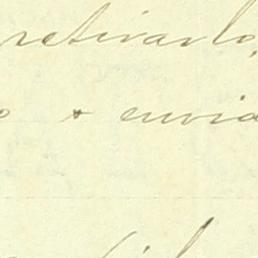 retirarlo,
o & envia